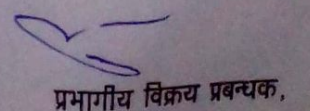 प्रभागीय विक्रय प्रबन्धक,